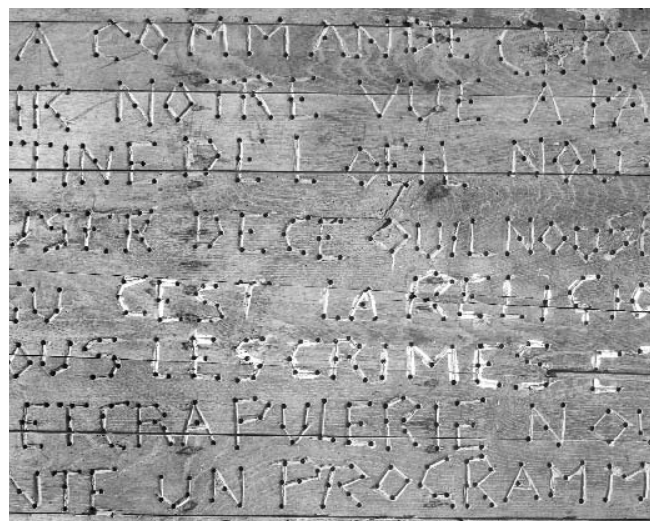 A COMMANDE CERV
IR NOTRE VUE A PA
TINE DE L OEIL NOU
USER DE CE QUIL NOUS
U CEST LA RELIGIO
OUS LES CRIMES E
ET CRAPULERIE NOU
NTE UN PROGRAMM